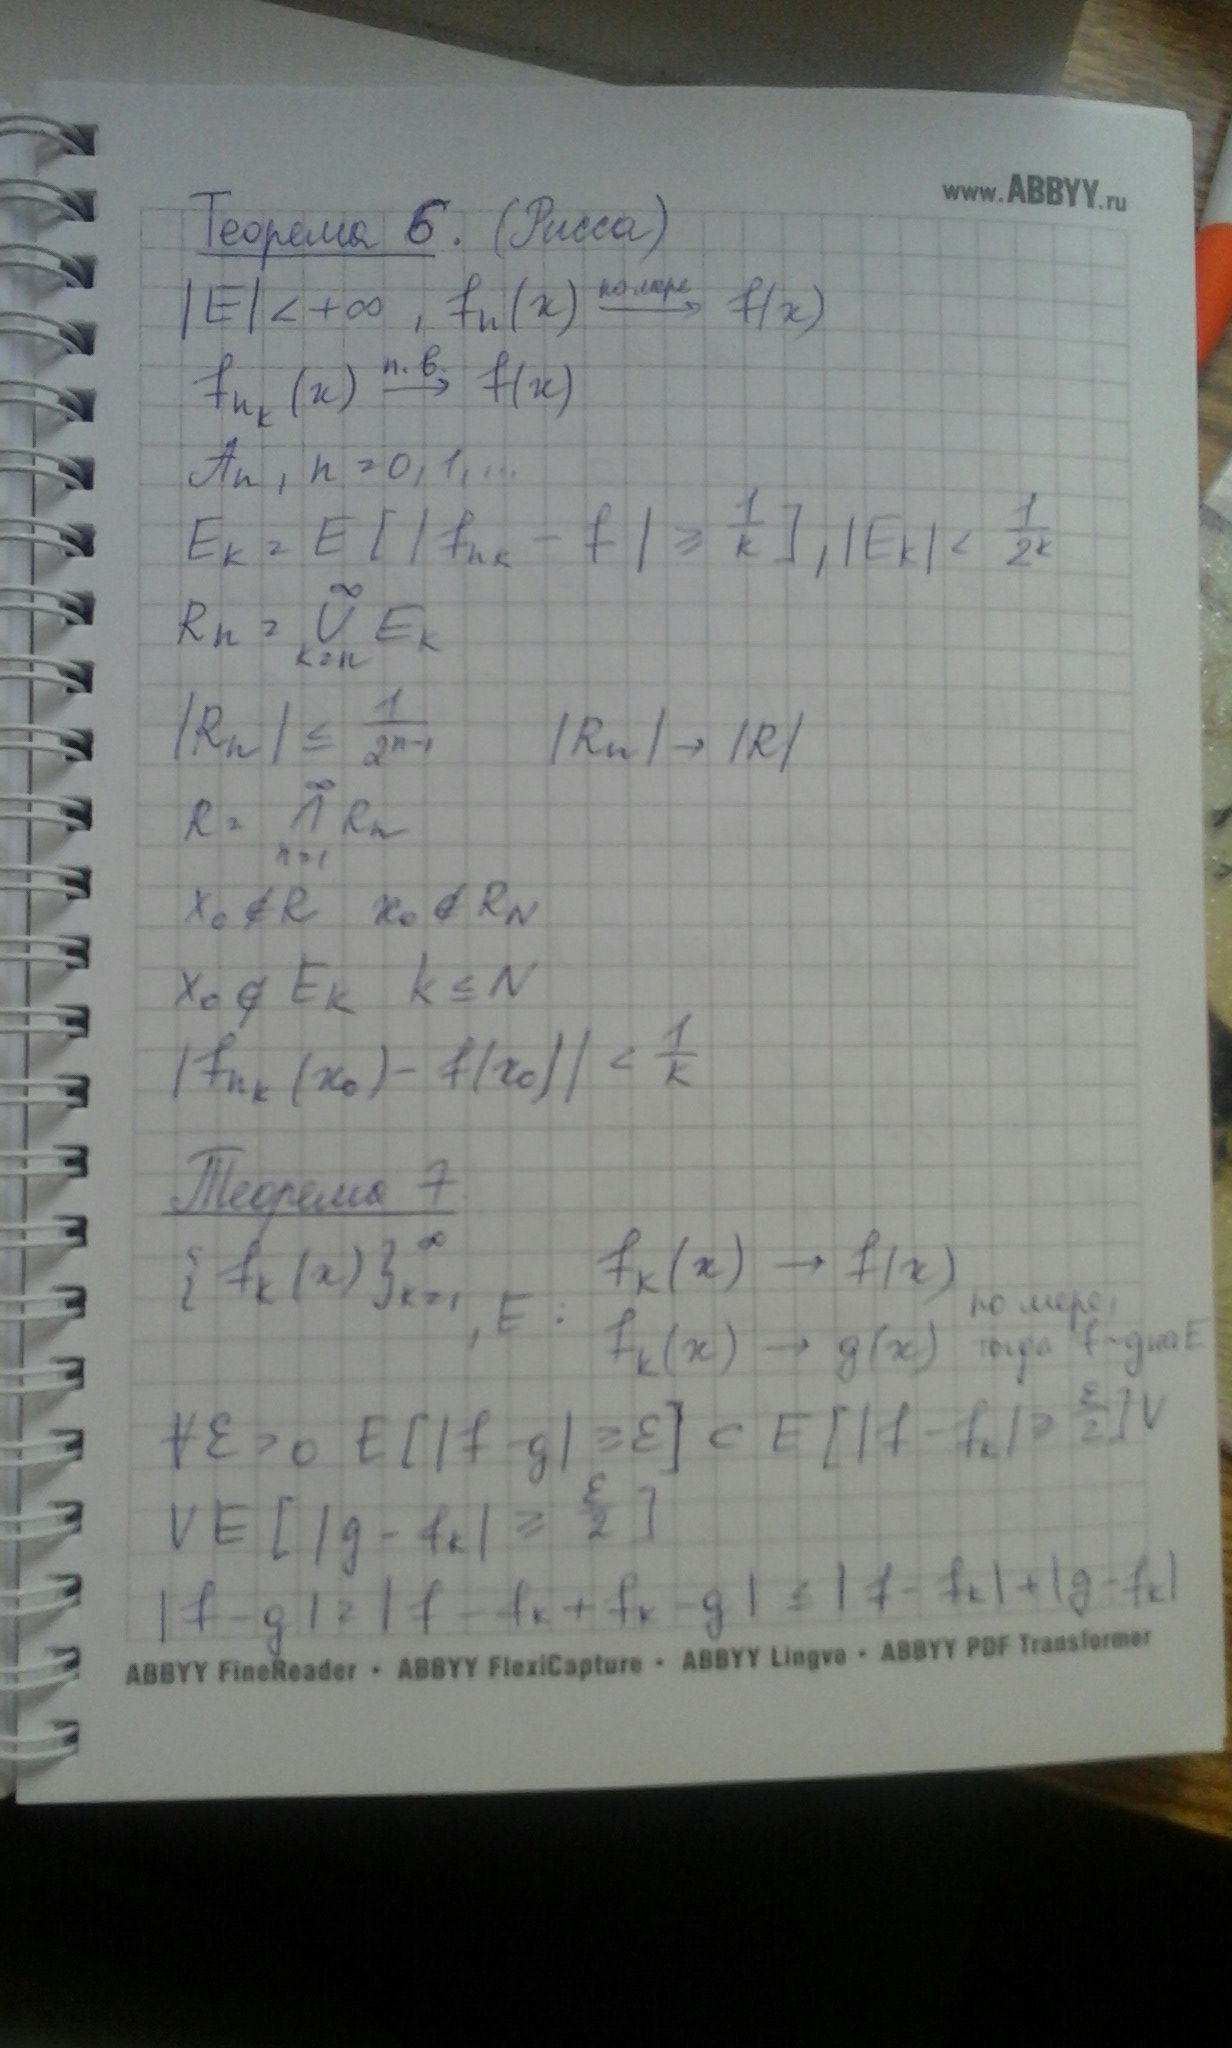 www.ABBYY.ru
Теорема 6. (Рисса)
|E| < +∞, fₙ(x) —по мере→ f(x)
f_{n_k}(x) —п. в.→ f(x)
Aₙ, n = 0, 1, ...
E_k = E[|f_{n_k} - f| ≥ 1/k], |E_k| < 1/2^k
Rₙ = ⋃_{k=n}^∞ E_k
|Rₙ| ≤ 1/2^{n-1} |Rₙ| → |R|
R = ⋂_{n=1}^∞ Rₙ
x₀ ∉ R x₀ ∉ R_N
x₀ ∉ E_k k ≤ N
|f_{n_k}(x₀) - f(x₀)| < 1/k
Теорема 7.
{f_k(x)}_{k=1}^∞, E : f_k(x) → f(x)
f_k(x) → g(x) по мере, тогда f ~ g на E
∀ε > 0 E[|f - g| ≥ ε] ⊂ E[|f - f_k| ≥ ε/2] ∪
∪ E[|g - f_k| ≥ ε/2]
|f - g| = |f - f_k + f_k - g| ≤ |f - f_k| + |g - f_k|
ABBYY FineReader • ABBYY FlexiCapture • ABBYY Lingvo • ABBYY PDF Transformer